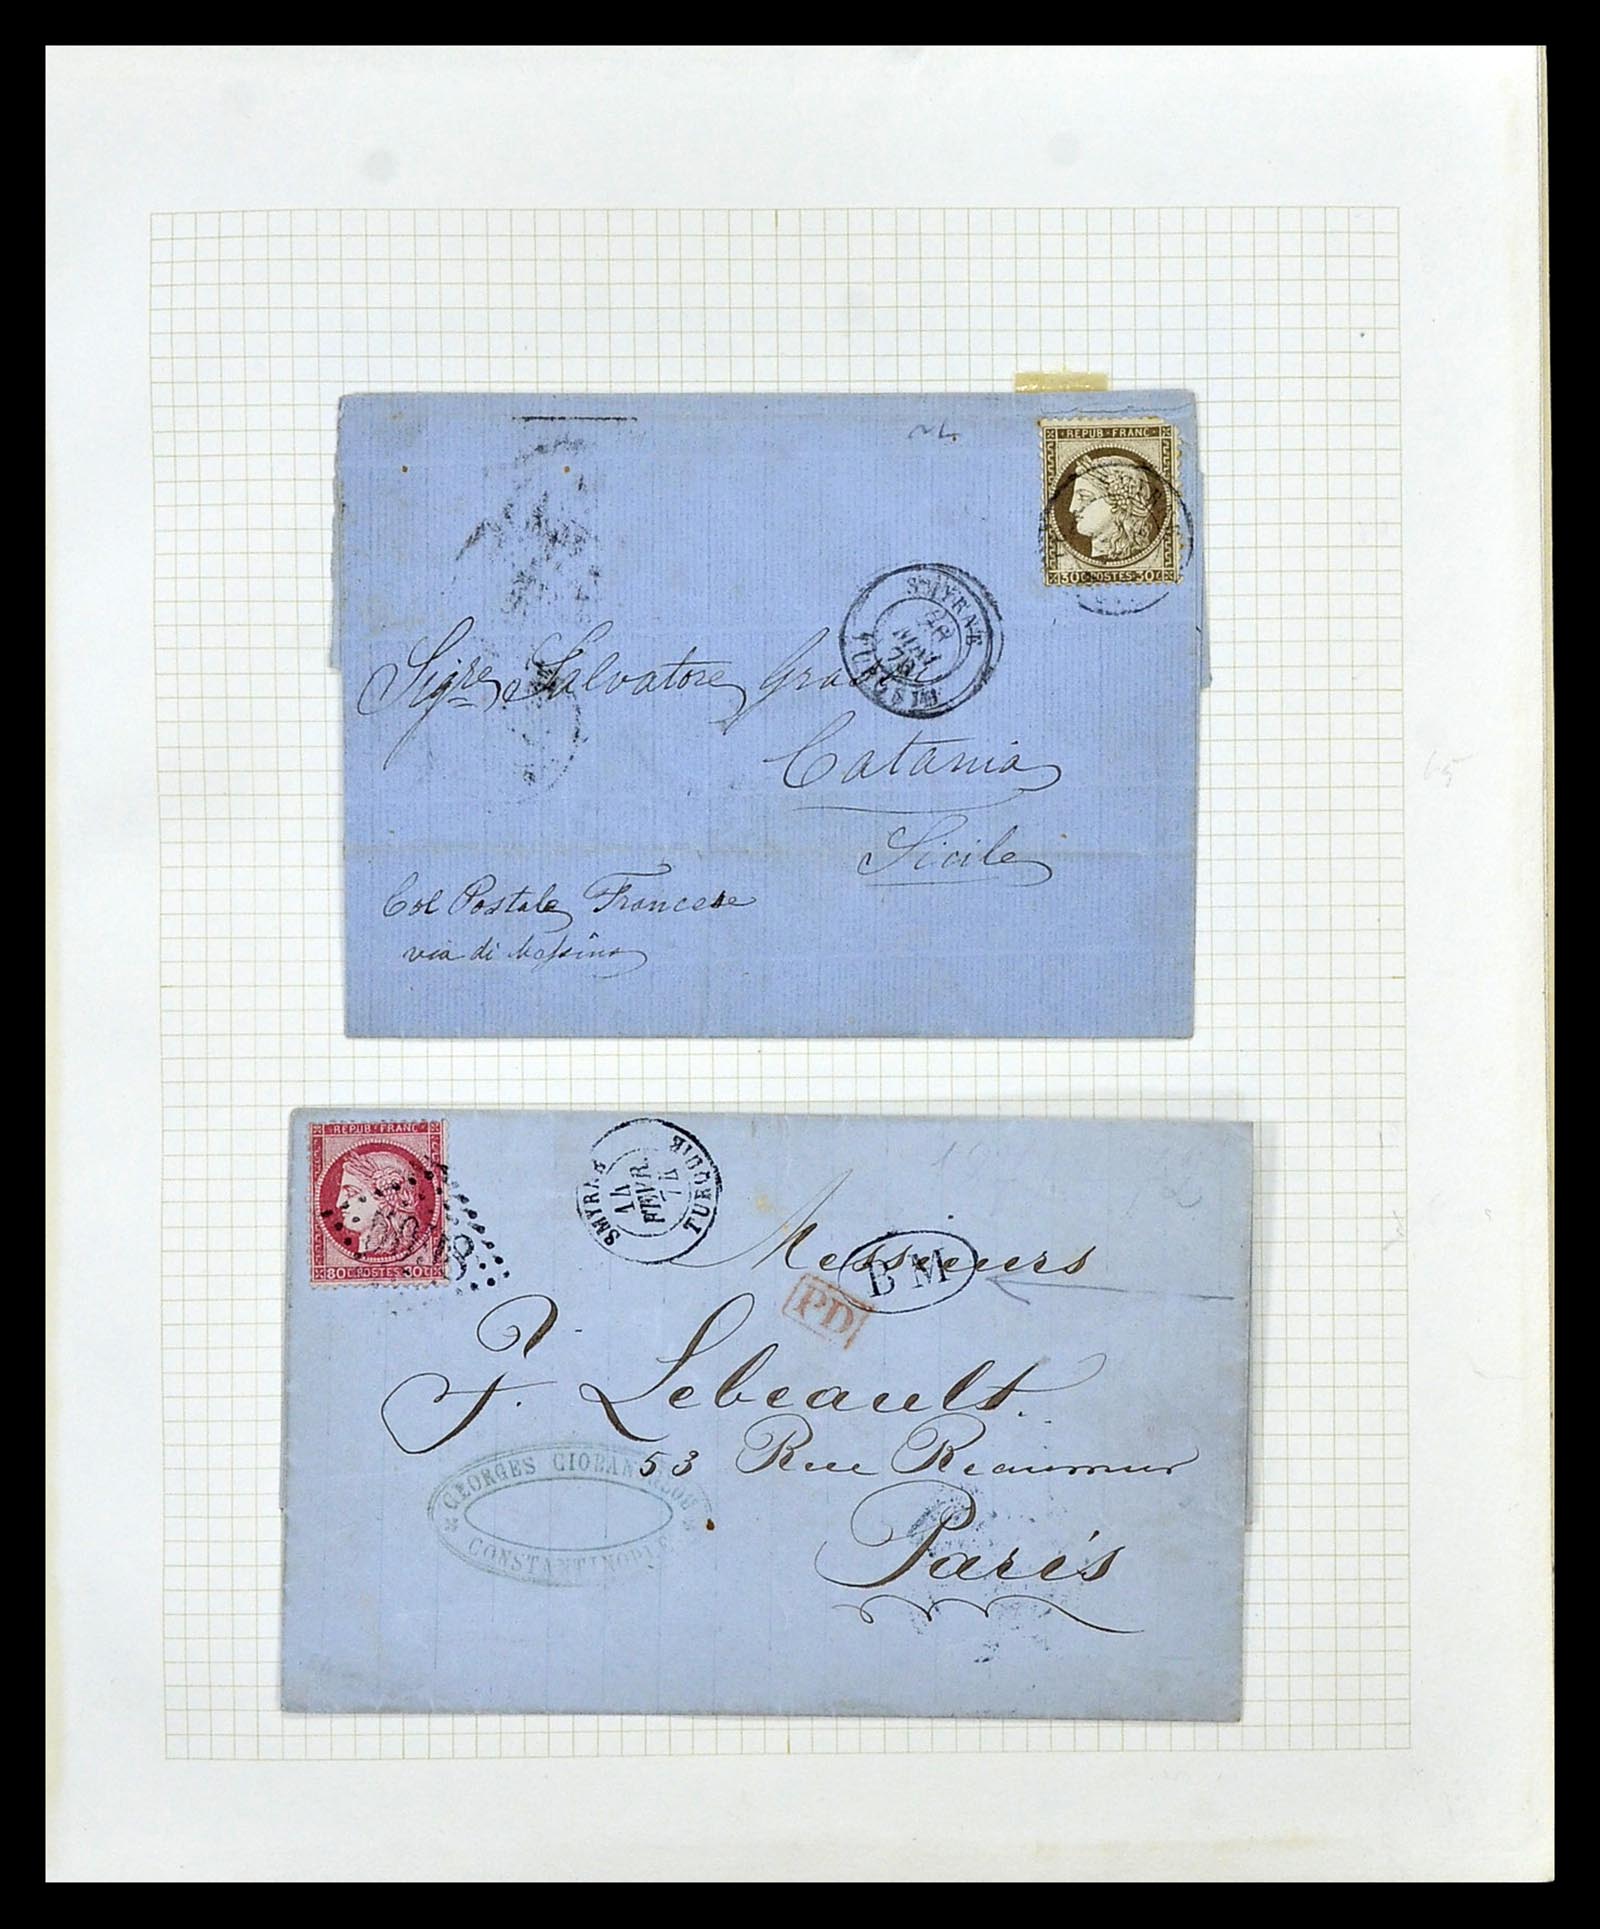 REPUB·FRANC
30C·POSTES·30C
SMYRNE
MAI
TURQUIE
Sigre Salvatore
Catania
Sicile
Col Postale Francese
via di Messina
REPUB·FRANC
80C·POSTES·80C
SMYRNE
14
FEVR.
74
TURQUIE
Messieurs
BM
PD
F. Lebeault.
53 Rue Reaumur
Paris
GEORGES
CONSTANTINOPLE